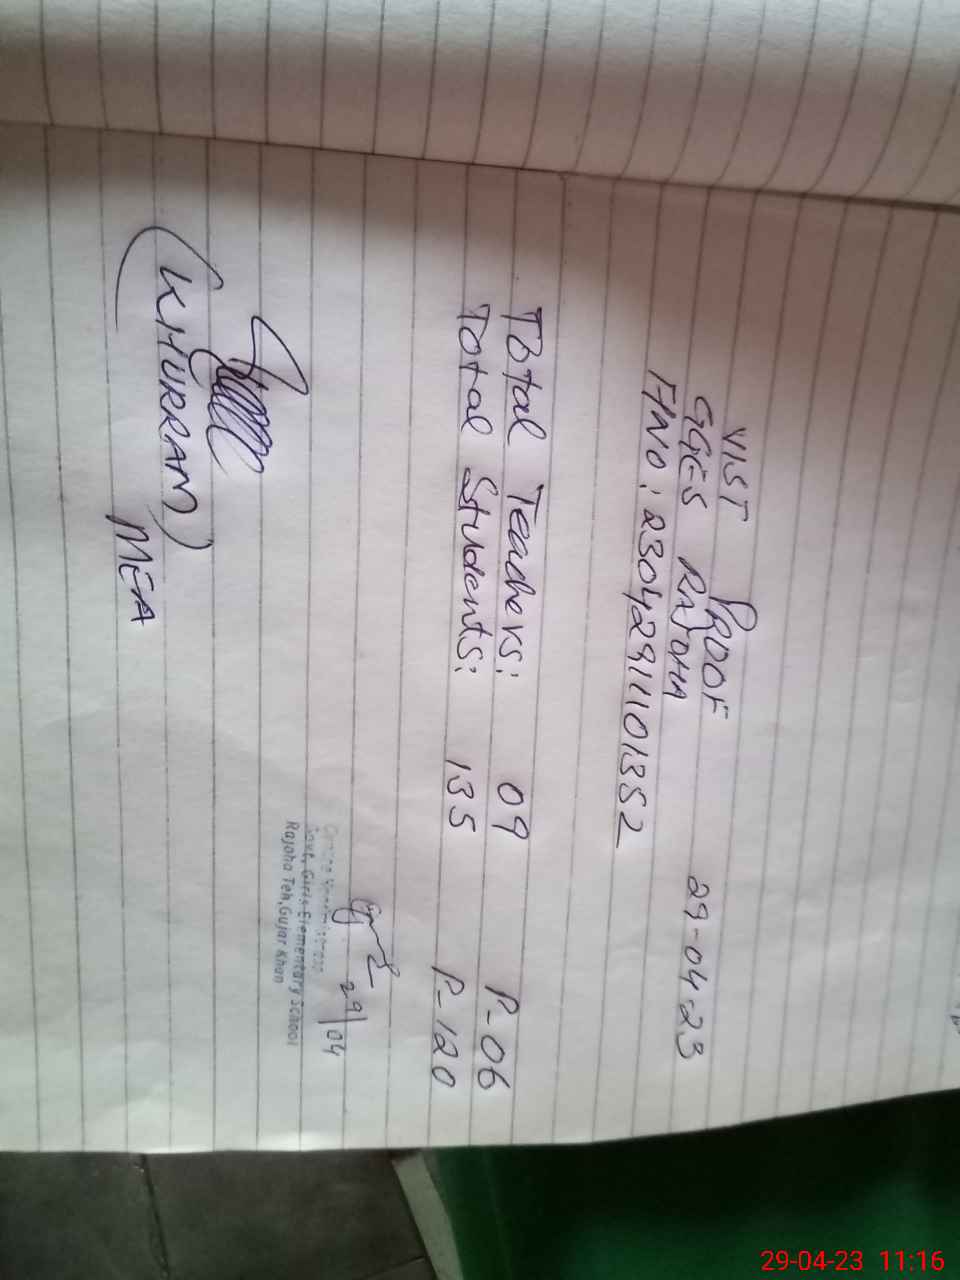 VIST PROOF
GGES RAJOHA 29-04-23
ANO: 23042911101352
Total Teachers: 09 P-06
Total Students: 135 P-120
29/04
Govt. Girls Elementary School
Rajoha Teh, Gujar Khan
(KHURRAM)
MEA
29-04-23 11:16